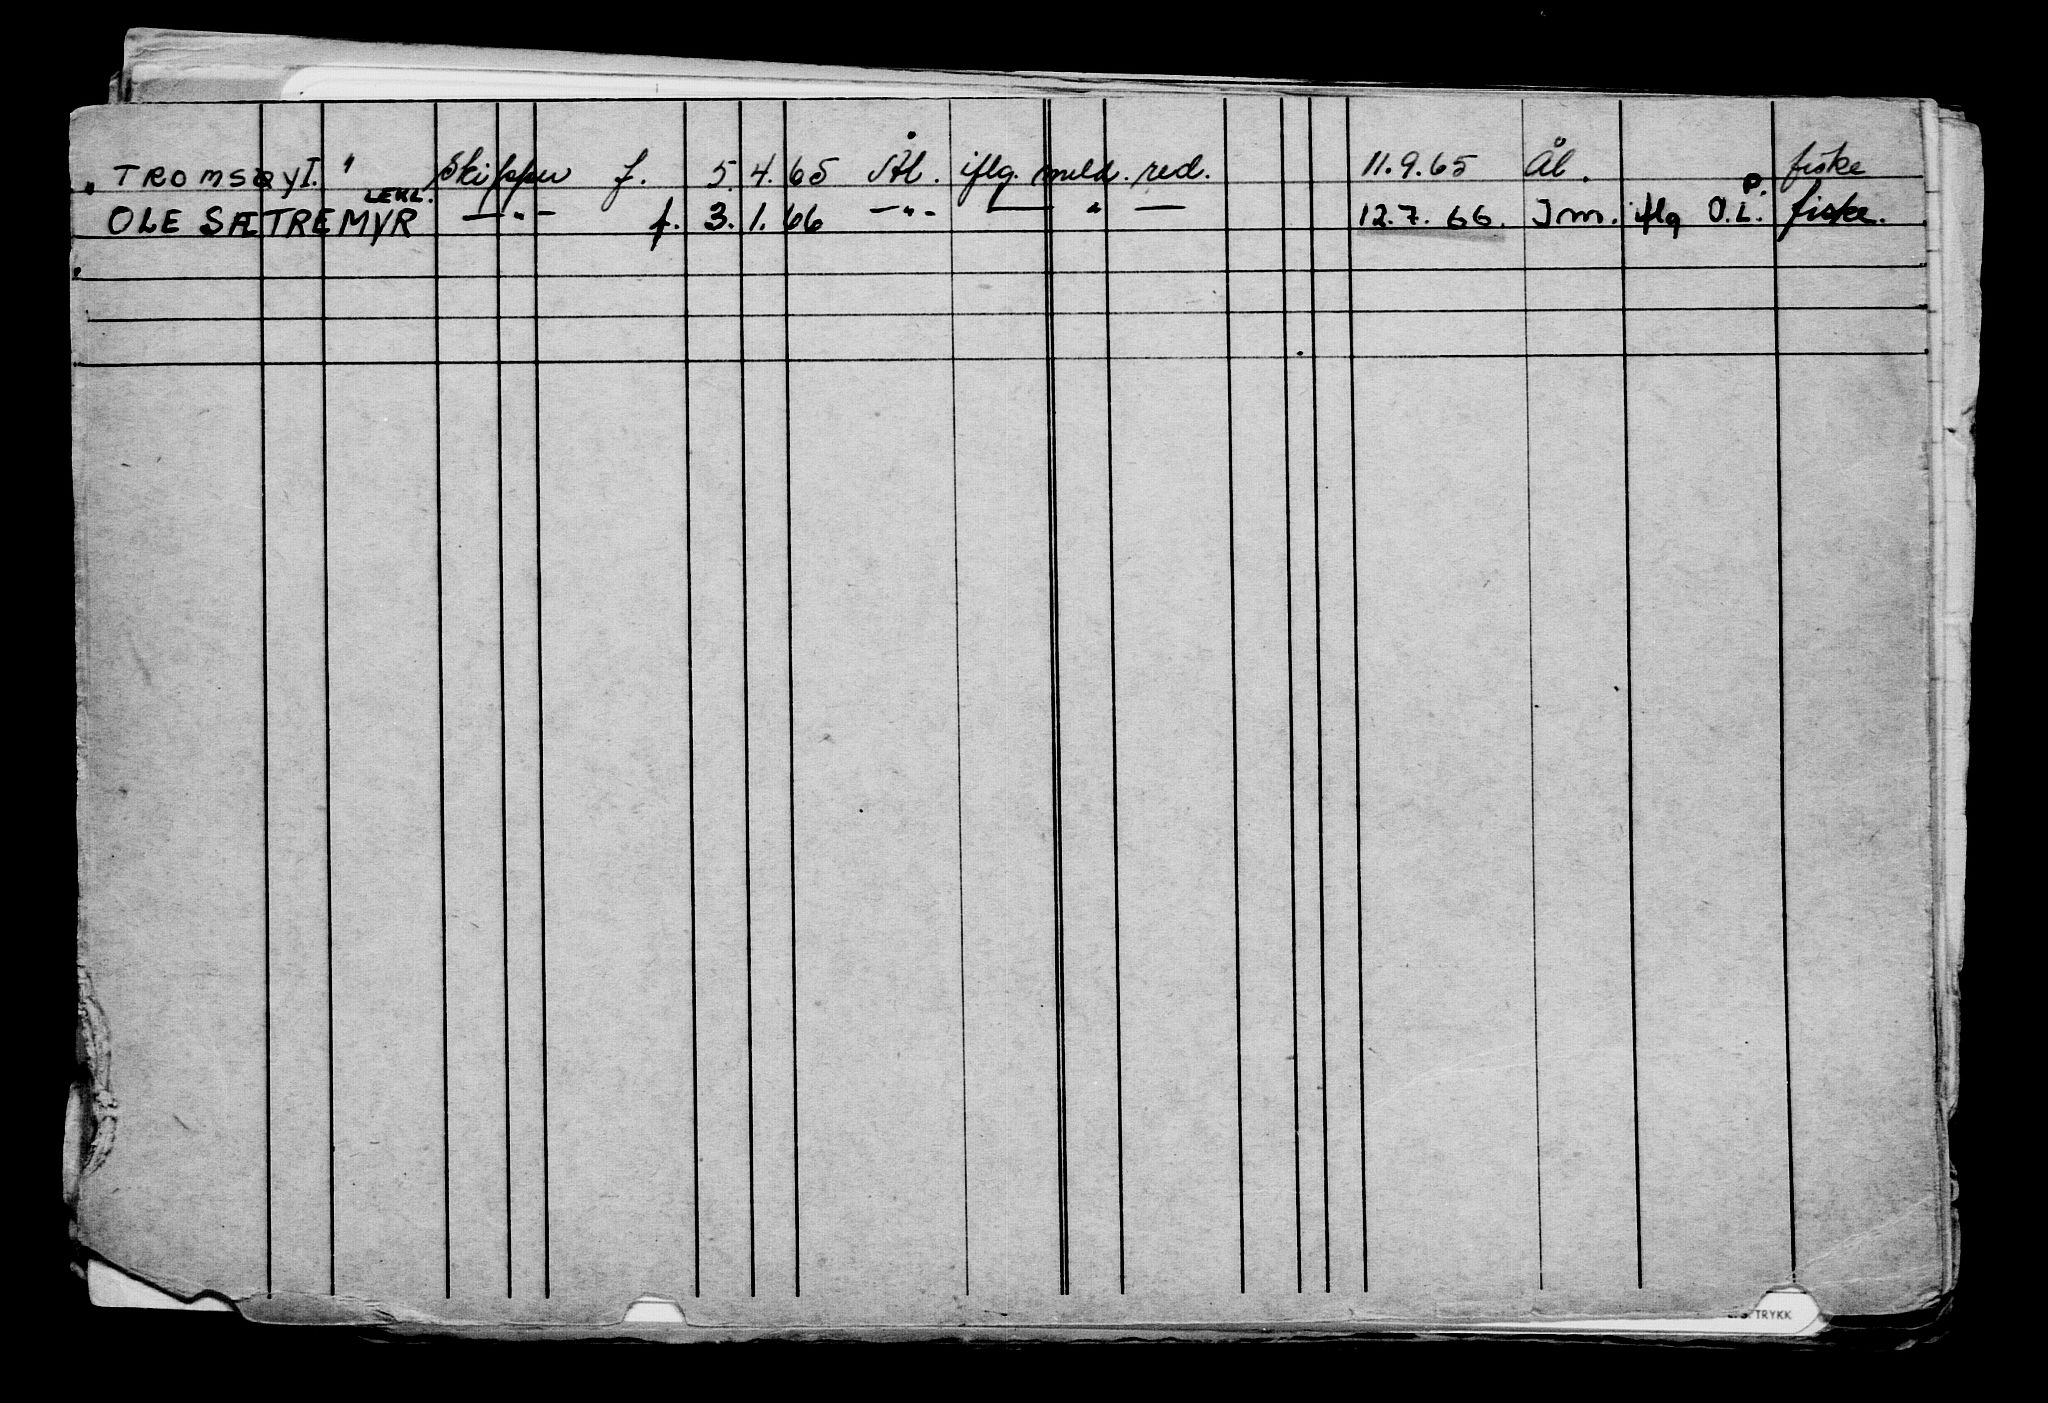 " TROMSØY I. " Skipper f. 5. 4. 65 Ål. iflg. meld. red. 11.9.65 Ål. fiske
OLE SÆTREMYR LEKL. — " — f. 3. 1. 66 — " — — " — 12. 7. 66. Jm. iflg O.L. P. fiske.
TRYKK